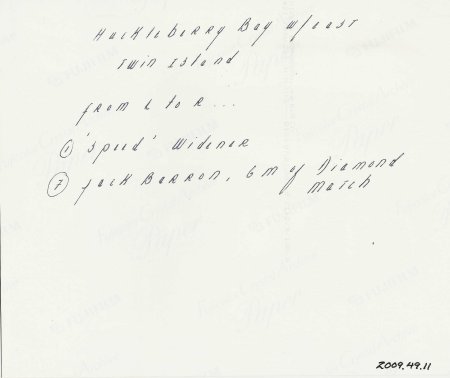 Huckleberry Bay w/east
Twin Island
from L to R...
① 'Speed' Widener
⑦ Jack Barron, GM of Diamond
Match
2009.49.11